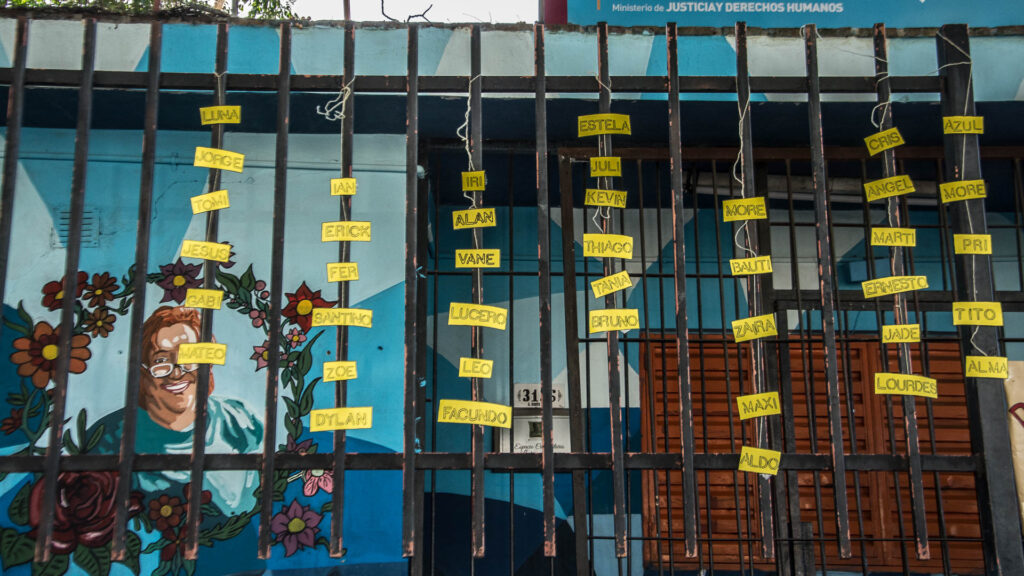 Ministerio de JUSTICIA Y DERECHOS HUMANOS
LUNA
JORGE
TOMI
JESUS
GABI
MATEO
IAN
ERICK
FER
SANTINO
ZOE
DYLAN
IRI
ALAN
VANE
LUCERO
LEO
FACUNDO
ESTELA
JULI
KEVIN
THIAGO
TANIA
BRUNO
MORE
BAUTI
ZAIRA
MAXI
ALDO
CRIS
ANGEL
MARTI
ERNESTO
JADE
LOURDES
AZUL
MORE
PRI
TITO
ALMA
Espacio